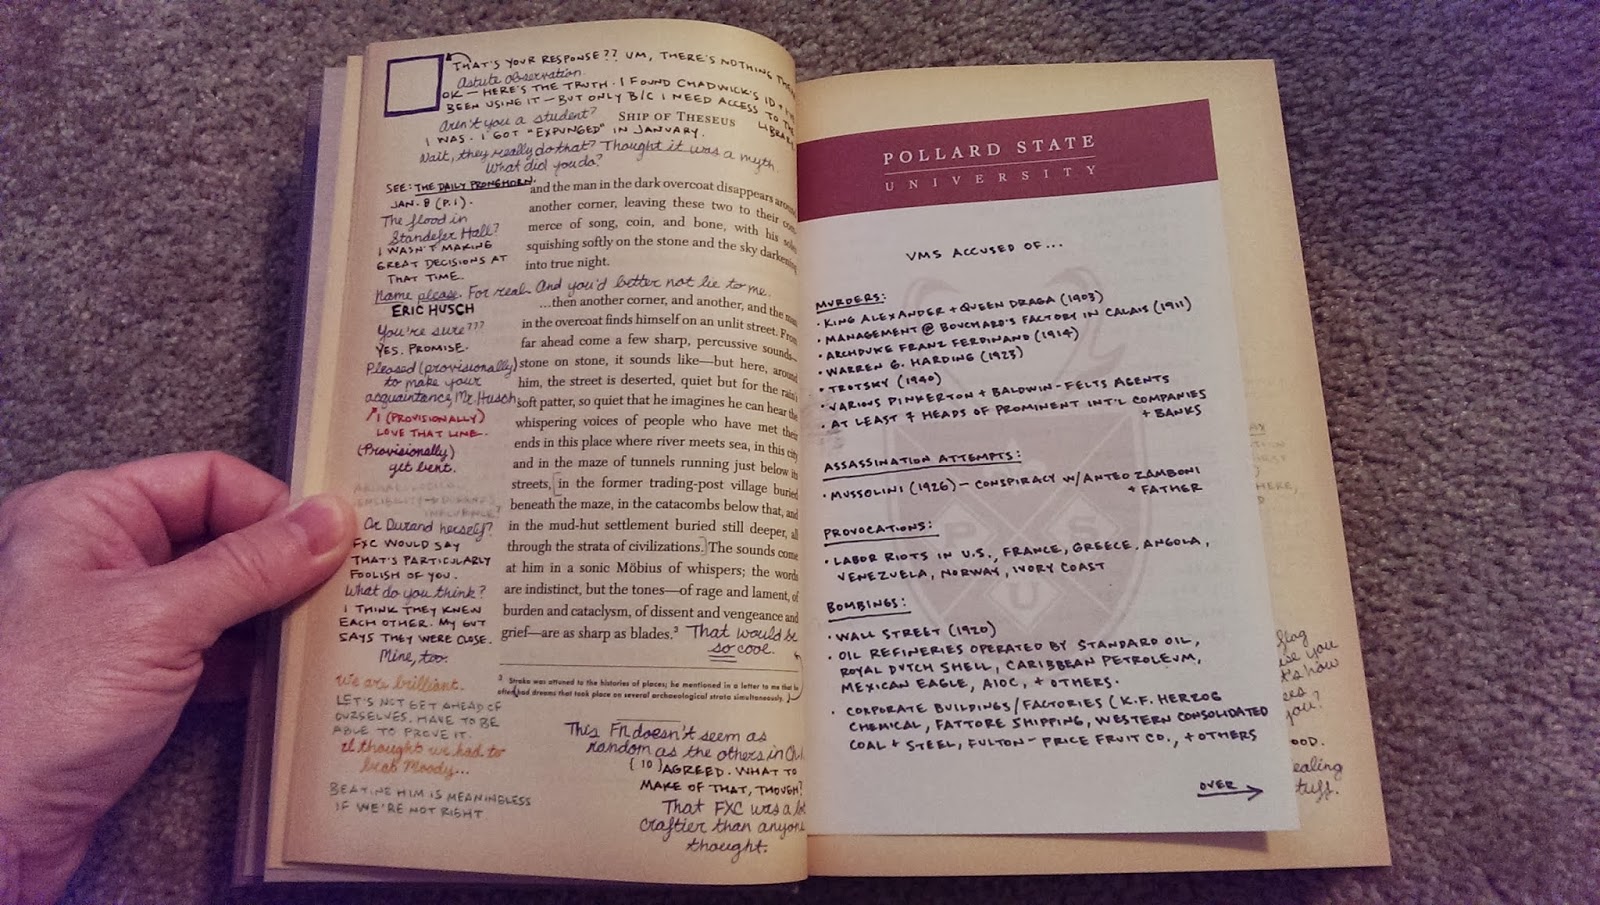 THAT'S YOUR RESPONSE?? UM, THERE'S NOTHING
Astute observation.
OK — HERE'S THE TRUTH. I FOUND CHADWICK'S ID +
BEEN USING IT — BUT ONLY B/C I NEED ACCESS TO THE
LIBRARY.
Aren't you a student?
SHIP OF THESEUS
I WAS. I GOT "EXPUNGED" IN JANUARY.
Wait, they really do that? Thought it was a myth.
What did you do?
SEE: THE DAILY PRONGHORN,
JAN. 8 (P.1).
The flood in
Standefer Hall?
I WASN'T MAKING
GREAT DECISIONS AT
THAT TIME.
Name please. For real. And you'd better not lie to me.
ERIC HUSCH
You're sure???
YES. PROMISE.
Pleased (provisionally)
to make your
acquaintance, Mr. Husch
I (PROVISIONALLY)
LOVE THAT LINE.
(Provisionally)
get bent.
Or Durand herself?
FXC WOULD SAY
THAT'S PARTICULARLY
FOOLISH OF YOU.
What do you think?
I THINK THEY KNEW
EACH OTHER. MY GUT
SAYS THEY WERE CLOSE.
Mine, too.
We are brilliant.
LET'S NOT GET AHEAD OF
OURSELVES. HAVE TO BE
ABLE TO PROVE IT.
I thought we had to
beat Moody...
BEATING HIM IS MEANINGLESS
IF WE'RE NOT RIGHT
and the man in the dark overcoat disappears
another corner, leaving these two to their com-
merce of song, coin, and bone, with his
squishing softly on the stone and the sky darkening
into true night.
...then another corner, and another, and the man
in the overcoat finds himself on an unlit street. From
far ahead come a few sharp, percussive sounds—
stone on stone, it sounds like—but here, around
him, the street is deserted, quiet but for the rain's
soft patter, so quiet that he imagines he can hear the
whispering voices of people who have met their
ends in this place where river meets sea, in this city
and in the maze of tunnels running just below its
streets, in the former trading-post village buried
beneath the maze, in the catacombs below that, and
in the mud-hut settlement buried still deeper, all
through the strata of civilizations. The sounds come
at him in a sonic Möbius of whispers; the words
are indistinct, but the tones—of rage and lament, of
burden and cataclysm, of dissent and vengeance and
grief—are as sharp as blades.³
That would be
so cool.
³ Straka was attuned to the histories of places; he mentioned in a letter to me that he
often had dreams that took place on several archaeological strata simultaneously.
This FN doesn't seem as
random as the others in Ch. 1
(10)
AGREED. WHAT TO
MAKE OF THAT, THOUGH?
That FXC was a lot
craftier than anyone
thought.
POLLARD STATE
UNIVERSITY
VMS ACCUSED OF...
MURDERS:
• KING ALEXANDER + QUEEN DRAGA (1903)
• MANAGEMENT @ BOUCHARD'S FACTORY IN CALAIS (1911)
• ARCHDUKE FRANZ FERDINAND (1914)
• WARREN G. HARDING (1923)
• TROTSKY (1940)
• VARIOUS PINKERTON + BALDWIN-FELTS AGENTS
• AT LEAST 7 HEADS OF PROMINENT INT'L COMPANIES
+ BANKS
ASSASSINATION ATTEMPTS:
• MUSSOLINI (1926) — CONSPIRACY W/ ANTEO ZAMBONI
+ FATHER
PROVOCATIONS:
• LABOR RIOTS IN U.S., FRANCE, GREECE, ANGOLA,
VENEZUELA, NORWAY, IVORY COAST
BOMBINGS:
• WALL STREET (1920)
• OIL REFINERIES OPERATED BY STANDARD OIL,
ROYAL DUTCH SHELL, CARIBBEAN PETROLEUM,
MEXICAN EAGLE, AIOC, + OTHERS.
• CORPORATE BUILDINGS/FACTORIES (K.F. HERZOG
CHEMICAL, FATTORE SHIPPING, WESTERN CONSOLIDATED
COAL + STEEL, FULTON-PRICE FRUIT CO., + OTHERS
OVER
P S U
flag
you
how
you?